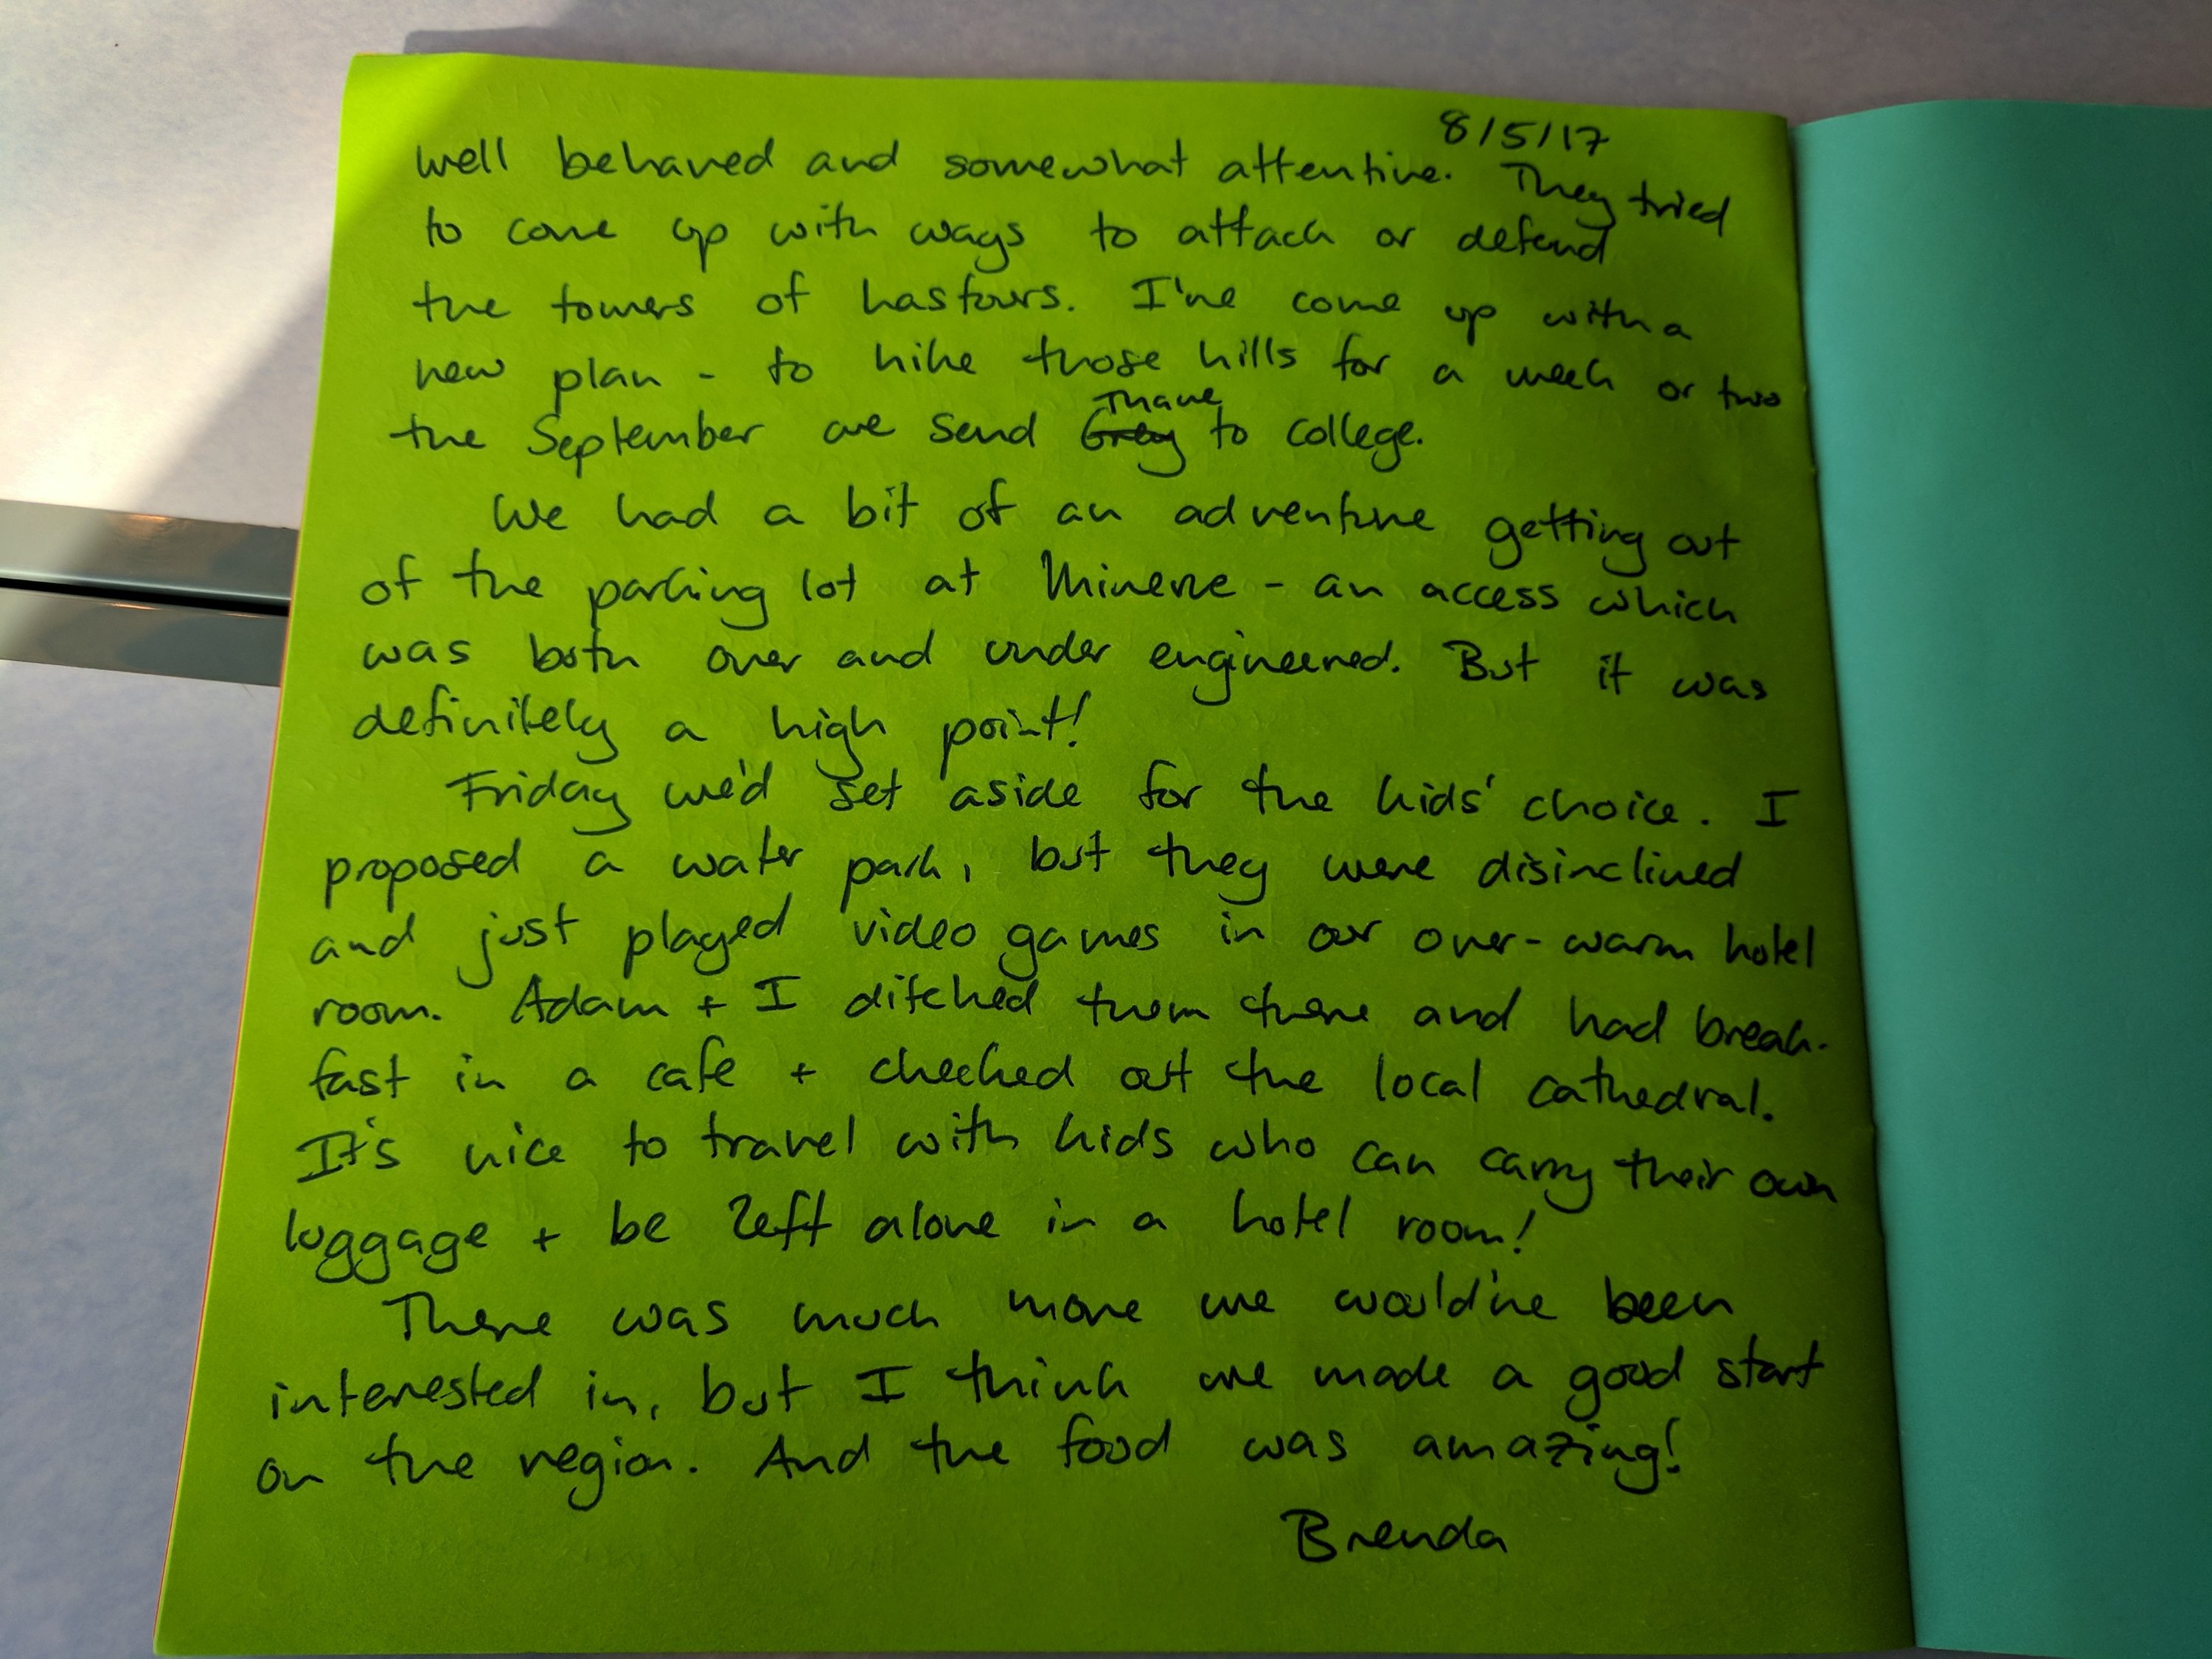 8/5/17
well behaved and somewhat attentive. They tried
to come up with ways to attack or defend
the towers of hastours. I've come up with a
new plan - to hike those hills for a week or two
Thane
the September we send Grey to college.
We had a bit of an adventure getting out
of the parking lot at Minerve - an access which
was both over and under engineered. But it was
definitely a high point!
Friday we'd set aside for the kids' choice. I
proposed a water park, but they were disinclined
and just played video games in our over-warm hotel
room. Adam + I ditched them there and had break-
fast in a cafe + checked out the local cathedral.
It's nice to travel with kids who can carry their own
luggage + be left alone in a hotel room!
There was much more we would've been
interested in, but I think we made a good start
on the region. And the food was amazing!
Brenda